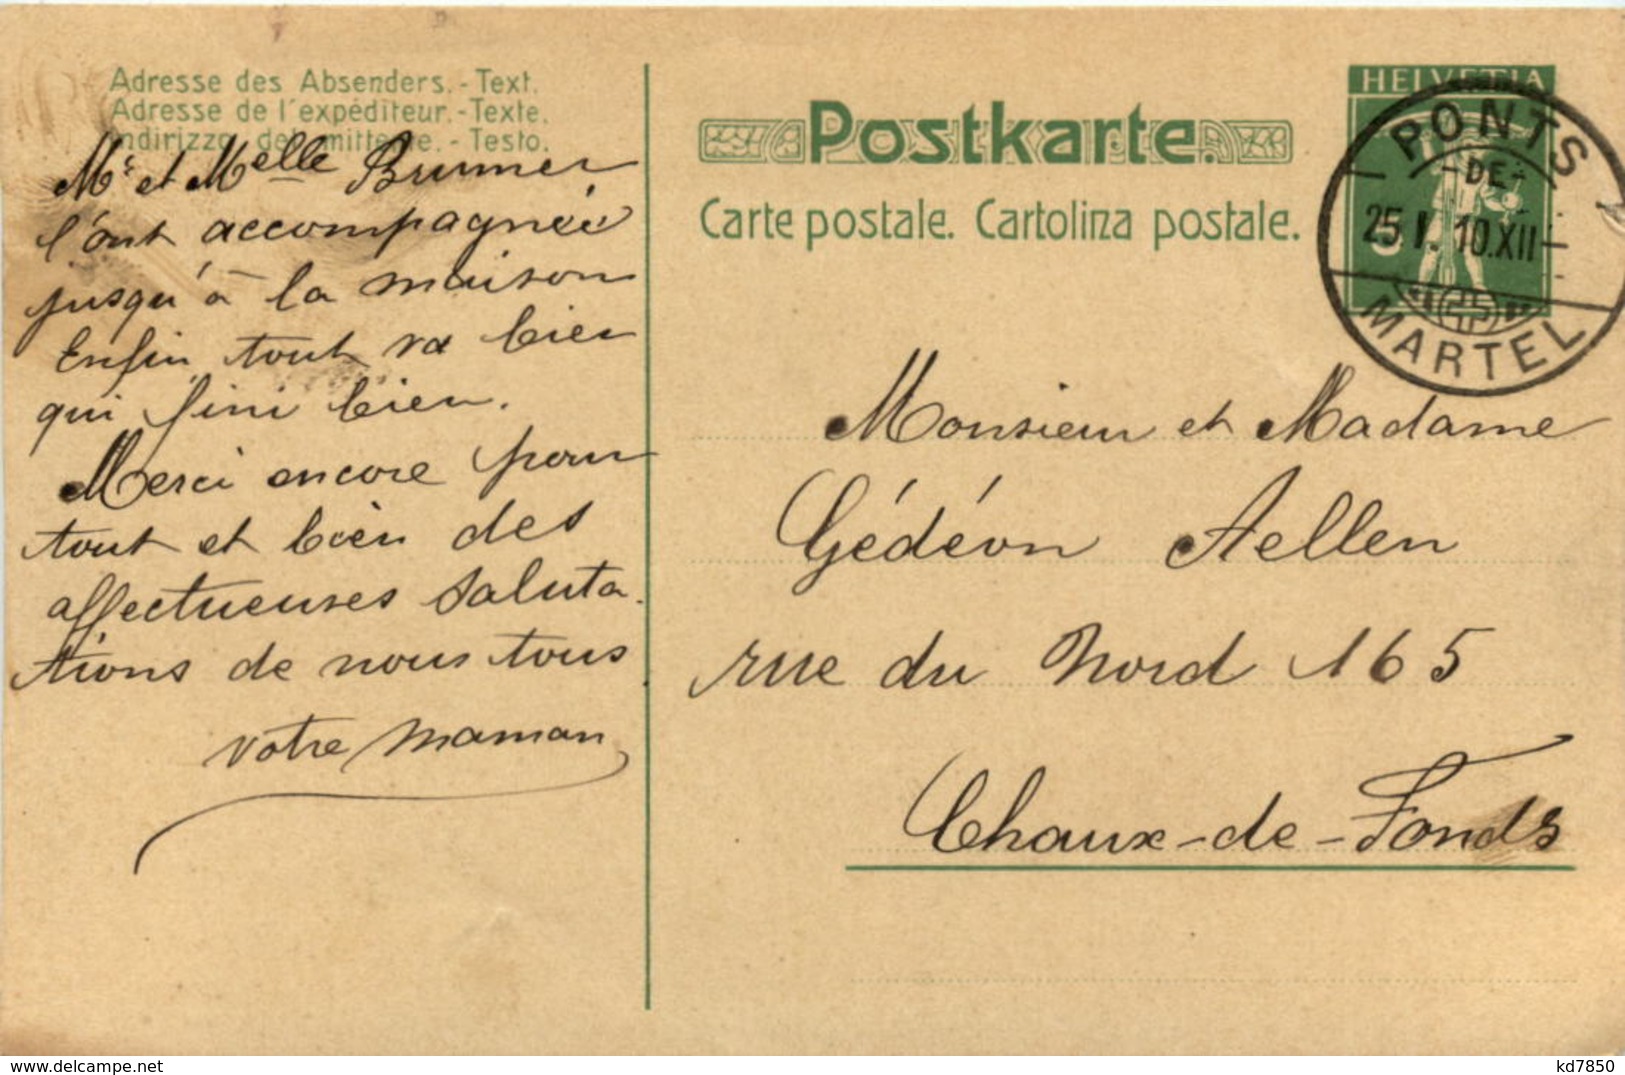 Adresse des Absenders. - Text.
Adresse de l'expéditeur. - Texte.
Indirizzo del mittente. - Testo.
Mr et Melle Brunner
l'ont accompagnée
jusqu'à la maison
Enfin tout va bien
qui fini bien.
Merci encore pour
tout et bien des
affectueuses saluta
tions de nous tous
votre maman
Postkarte.
Carte postale. Cartolina postale.
HELVETIA
PONTS
-DE-
25 I. 10.XII
MARTEL
Monsieur et Madame
Gédéon Aellen
rue du Nord 165
Chaux-de-Fonds
kd7850